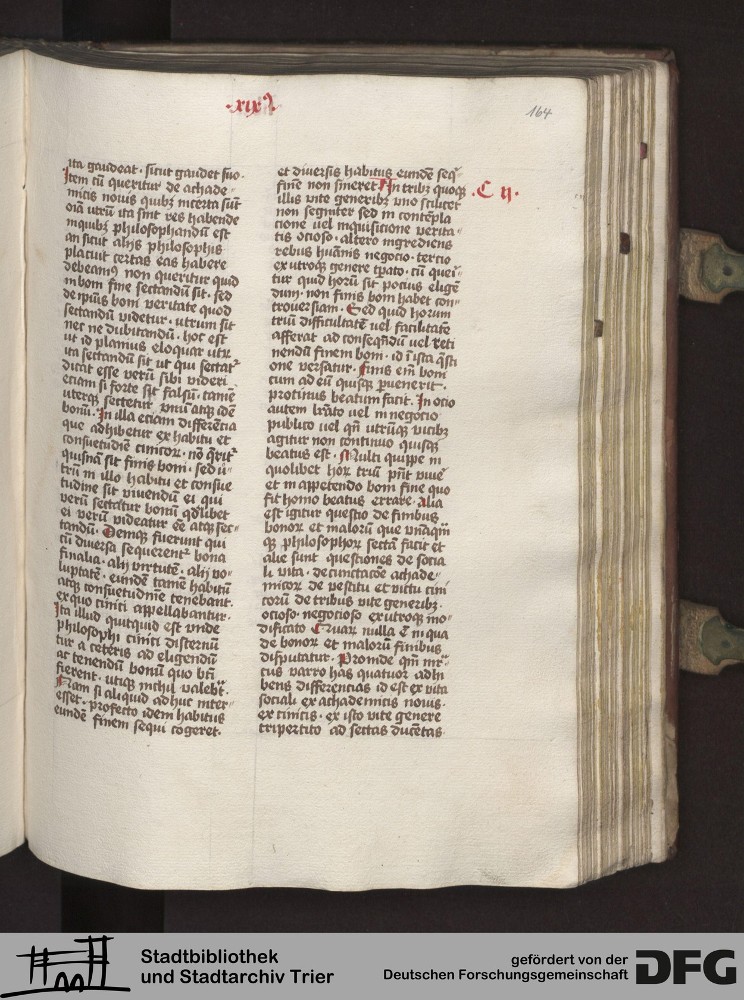 ·xix·
164
ita gaudeat · sicut gaudet suo ·
Item cū queritur de achade-
micis nouis quibꝫ incerta sūt
oīa utrū ita sint res habende
in quibꝫ philosophandū est
an sicut alijs philosophis
placuit certas eas habere
debeamꝰ non queritur quid
in bom fine sectandū sit · sed
de ipiꝰ boni veritate quod
sectandū videtur · utrum sit
nec ne dubitandū · hoc est
ut id planius eloquar utrū
ita sectandū sit ut qui sectatʳ
dicat esse verū sibi videri
eciam si forte sit falsū · tamē
uterqꝫ sectetur vnū atqꝫ idē
bonū · In illa eciam differēcia
que adhibetur ex habitu et
consuetudīe cinicoꝝ · nō q̄ritʳ
quisnā sit finis boni · sed ū-
trū in illo habitu et consue
tudine sit viuendū ei qui
verū sectatur bonū qdlibet
ei verū videatur ēē atqꝫ sec-
tandū · Deniqꝫ fuerunt qui
cū diuersa sequerentʳ bona
finalia · alij virtutē · alij vo-
luptatē · eundē tamē habitū
atqꝫ consuetudinē tenebant ·
ex quo cinici appellabantur ·
Ita illud quitquid est vnde
philosophi cinici discernū
tur a ceteris ad eligendū
ac tenendū bonū quo bt̄i
fierent · utiqꝫ nichil valebt̄ ·
Nam si aliquid ad huc inter-
esset · profecto idem habitus
eundē finem sequi cogeret ·
et diuersis habitus eundē seq̄-
finē non sineret · In tribꝫ quoqꝫ
·C ij·
illis vite generibꝫ vno scilicet
non segniter sed in contēpla
cione uel inquisicione verita-
tis ocioso · altero ingrediens
rebus hūanis negocio · tercio
ex utroqꝫ genere tp̄ato · cū quei-
tur quid horū sit pocius eligē
dum · non finis boni habet con-
trouersiam · Sed quid horum
triū difficultatē uel facilitatē
afferat ad conseqūdū uel reti
nendū finem boni · id ī ista q̄sti
one versatur · Finis em̄ boni
cum ad eū quisqꝫ puenerit ·
protinus beatum facit · In ocio
autem lrāto uel in negocio
publico uel qn̄ utrūqꝫ vicibꝫ
agitur non continuo quisqꝫ
beatus est · Multi quippe in
quolibet hoꝝ triū pn̄t viuē
et in appetendo boni fine quo
fit homo beatus errare · Alia
est igitur questio de finibus
bonoꝝ et maloꝝ que vnāqm̄
qꝫ philosophoꝝ sectā facit et
alie sunt questiones de socia
li vita · de cunctacōe achade-
micoꝝ de vestitu et victu cini
corū de tribus vite generibꝫ ·
ocioso · negocioso ex utroqꝫ mo-
dificato Quaꝝ nulla ē in qua
de bonoꝝ et maloꝝ finibus
disputatur · Proinde qm̄ mr̄-
cus varro has quatuor adhi
bens differencias id est ex vita
sociali ex achademicis nouis ·
ex cinicis · ex isto vite genere
tripertito ad sectas ducētas
Stadtbibliothek
und Stadtarchiv Trier
gefördert von der
Deutschen Forschungsgemeinschaft
DFG